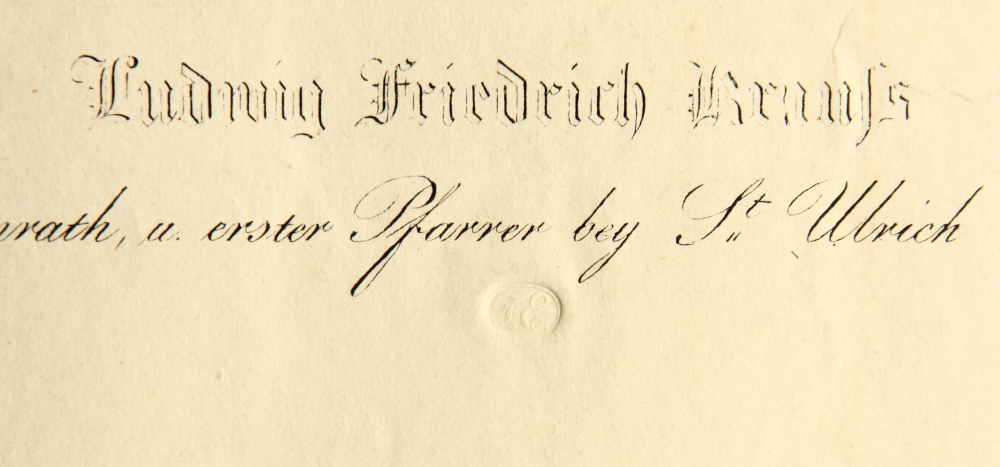 Ludwig Friedrich Krauſs
nrath, u. erster Pfarrer bey St. Ulrich